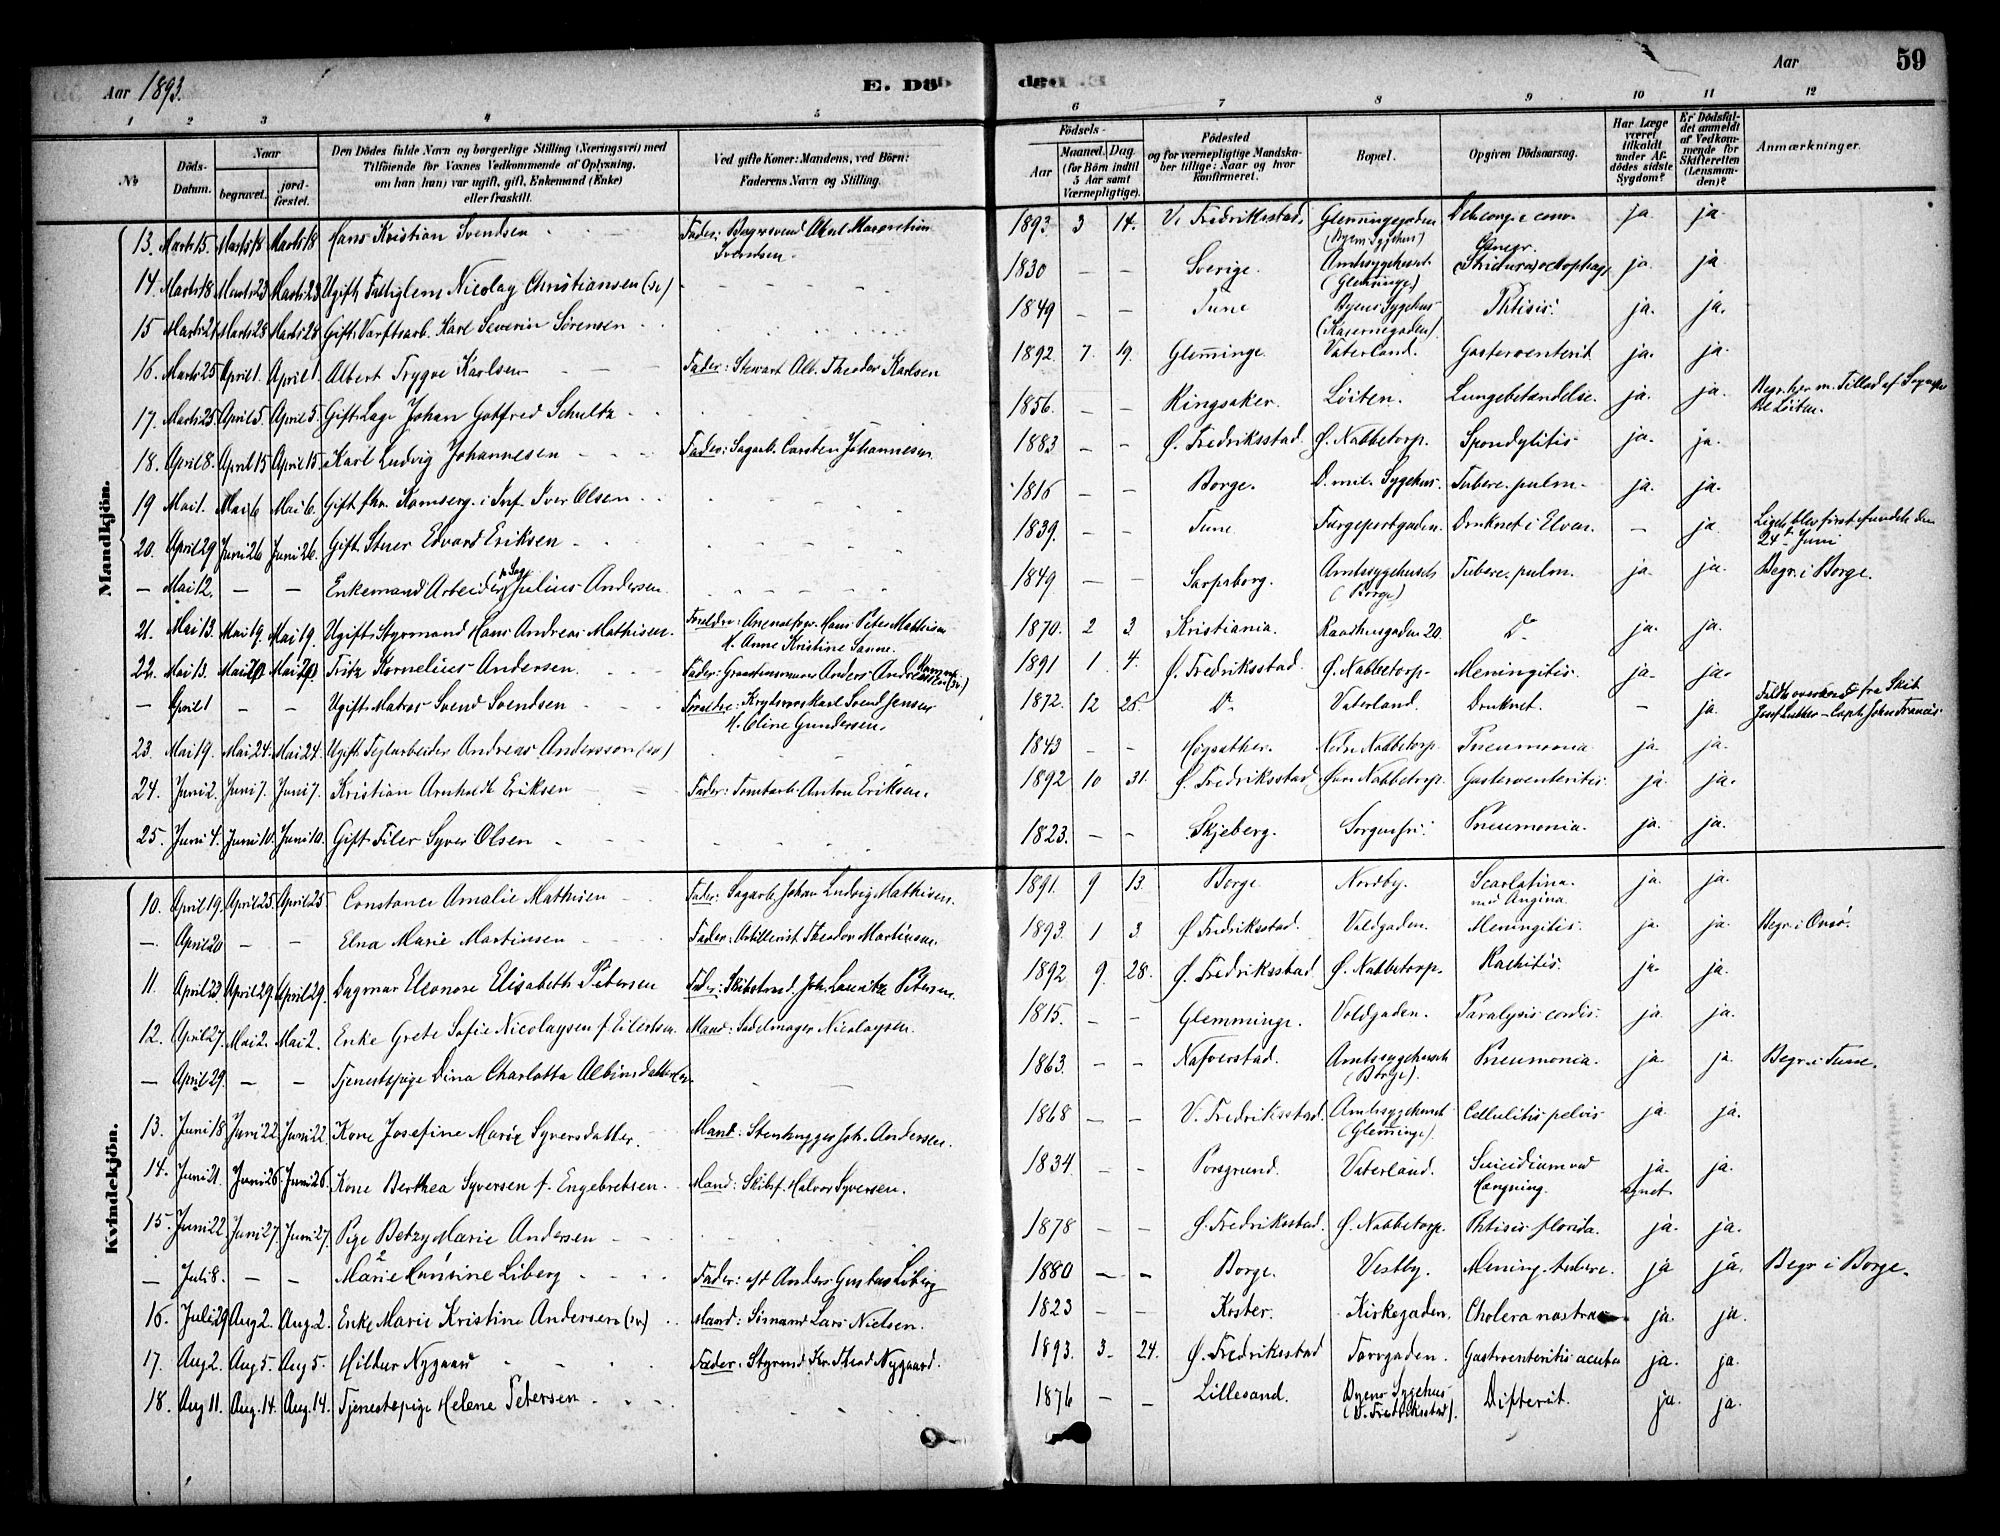 Aar 1893.
E. Död
E. Död
Aar
59
1 2 3 4 5 6 7 8 9 10 11 12
No
Döds-Datum.
Naar
begravet.
jordfæstet.
Den Dödes fulde Navn og borgerlige Stilling (Næringsvei) med
Tilföiende for Voxnes Vedkommende af Oplysning,
om han (hun) var ugift, gift, Enkemand (Enke)
eller fraskilt.
Ved gifte Koner: Mandens, ved Börn:
Faderens Navn og Stilling.
Födsels-
Aar
Maaned. Dag.
(for Börn indtil
5 Aar samt
Værnepligtige).
Födested
og for værnepligtige Mandskaber tillige: Naar og hvor
konfirmeret.
Bopæl.
Opgiven Dödsaarsag.
Har Læge været tilkaldt under Afdödes sidste Sygdom?
Er Dödsfaldet anmeldt af Vedkommende for Skifteretten (Lensmanden)?
Anmærkninger.
Mandkjön.
13. Marts 15. Marts 18 Marts 18 Hans Kristian Svendsen Fader: Svendsen. 1893 3 14. V. Fredriksstad Glemmingegaden (Byens Sygehus) ja. ja.
14. Marts 18 Marts 23 Marts 23 Ugift Fattiglem Nicolay Christiansen (sv) 1830 – – Sverige. Amtssygehuset (Glemminge) ja. ja
15 Marts 21 Marts 28 Marts 28 Gift Værftsarb. Karl Severin Sørensen 1849 – – Tune Byens Sygehus (Kasernegaden). Phtisis. ja. ja.
16. Marts 25 April 1. April 1. Albert Trygve Karlsen Fader: Stewart Alb. Theodor Karlsen 1892. 7. 19. Glemminge. Vaterland. Gasteroenterit ja. ja.
17. Marts 25. April 5. April 5 Gift Læge Johan Gotfred Schultz 1856. – – Ringsaker. Löiten. Lungebetændelse. ja. ja. Begr. her m. Tillad. af Sognepr. til Löiten.
18. April 8. April 15 April 15 Karl Ludvig Johannesen Fader: Sagarb. Carsten Johannesen 1883 – – Ø. Fredriksstad. Ø. Nabbetorp. Spondylitis ja. ja.
19 Mai 1. Mai 6 Mai 6. Gift fhv. Komserg. i Inf. Iver Olsen 1816 – – Borge. D. mil. Sygehus. Tuberc. pulm. ja. ja.
20. April 29 Juni 26 Juni 26. Gift Stuer Edvard Eriksen 1839. – – Tune Færgeportgaden. Druknet i Elven. – ja Liget blev först fundet den 24de Juni
– Mai 12. – – Enkemand Arbeider p. Sag Julius Andersen 1849 – – Sarpsborg. Amtssygehuset (Borge) Tuberc. pulm. ja. ja. Begr. i Borge.
21. Mai 13. Mai 19. Mai 19. Ugift Styrmand Hans Andreas Mathisen. Forældre: Hans Peter Mathisen H. Anne Kristine Sanne. 1870. 2 3 Kristiania. Raadhusgaden 20. Do ja. ja.
22. Mai 13. Mai 20 Mai 20 Fritz Kornelius Andersen. Fader: Anders Andreassen (sv) 1891 1. 4. Ø. Fredriksstad. Ø. Nabbetorp. Meningitis. ja. ja.
– April 1 – – Ugift Matros Svend Svendsen Forældre: Svend Jensen H. Oline Gundersen. 1872. 12 26. Do Vaterland. Druknet. – ja. Faldt overbord fra Skib Josef – Capt. John Francis
23. Mai 19. Mai 24. Mai 24. Ugift Teglarbeider Andreas Andersson (sv) 1843 – – Nedre Nabbetorp. Pneumonia. ja. ja.
24. Juni 2. Juni 7. Juni 7. Kristian Arnholdt Eriksen Fader: Tomtarb. Anton Eriksen. 1892 10 31. Ø. Fredriksstad Øvre Nabbetorp. Gasteroenteritis. ja. ja.
25. Juni 4. Juni 10. Juni 10. Gift Filer Syver Olsen 1823. – – Skjeberg. Sorgenfri. Pneumonia. ja. ja.
Kvindekjön.
10. April 19. April 25 April 25 Constance Amalie Mathisen Fader: Sagarb. Johan Ludvig Mathisen. 1891. 9 13. Borge. Nordby. Scarlatina med Angina. ja. ja.
– April 20 – – Elna Marie Martinsen Fader: Artillerist Theodor Martinsen. 1893. 1 3. Ø. Fredriksstad. Voldgaden. Meningitis. ja. ja. Begr. i Onsø.
11. April 23 April 29 April 29. Dagmar Eleonore Elisabeth Petersen Fader: Skibstmd. Joh. Lauritz Petersen. 1892 9. 28. Ø. Fredriksstad. Ø. Nabbetorp. Rachitis. ja. ja.
12. April 27. Mai 2. Mai 2. Enke Grete Sofie Nicolaysen f. Eilertsen Mand: Sadelmager Nicolaysen. 1815. – – Glemminge. Voldgaden. Paralysis cordis. ja. ja.
– April 29. – – Tjenestepige Dina Charlotta Albinsdatter (sv) 1863. – – Nafverstad. Amtssygehuset (Borge). Pneumonia. ja. ja. Begr. i Tune.
13. Juni 18 Juni 22 Juni 22. Kone Josefine Marie Syversdatter Mand: Stenhugger Joh. Andersen. 1868 – – V. Fredriksstad. Amtssygehuset (Glemminge). Cellulitis pelvis ja. ja.
14. Juni 21. Juni 26 Juni 26. Kone Berthea Syversen f. Engebretsen. Mand: Skibsf. Halvor Syversen. 1834 – – Porsgrund. Vaterland. Suicidium ved Hængning. ja. synet. ja.
15. Juni 22 Juni 27. Juni 27. Pige Betzy Marie Andersen 1878 – – Ø. Fredriksstad. Ø. Nabbetorp. Phtisis florida. ja. ja.
– Juli 8. – – Marie Hansine Liberg Fader: Anders Gustav Liberg 1880 – – Borge. Vestby. Mening. tuberc. ja ja. Begr. i Borge.
16. Juli 29 Aug. 2. Aug. 2. Enke Marie Kristine Andersen (sv) Mand: Sömand Lars Nielsen. 1823 – – Koster. Kirkegaden. Cholera nostras ja. ja.
17. Aug 2. Aug 5. Aug 5. Hildur Nygaard Fader: Styrmd. Kr. Nygaard. 1893. 3. 24. Ø. Fredriksstad Torvgaden. Gastroenteritis acuta ja. ja.
18. Aug 11. Aug. 14. Aug. 14. Tjenestepige Helene Petersen 1876 – – Lillesand. Byens Sygehus (V. Fredriksstad). Difterit. ja. ja.